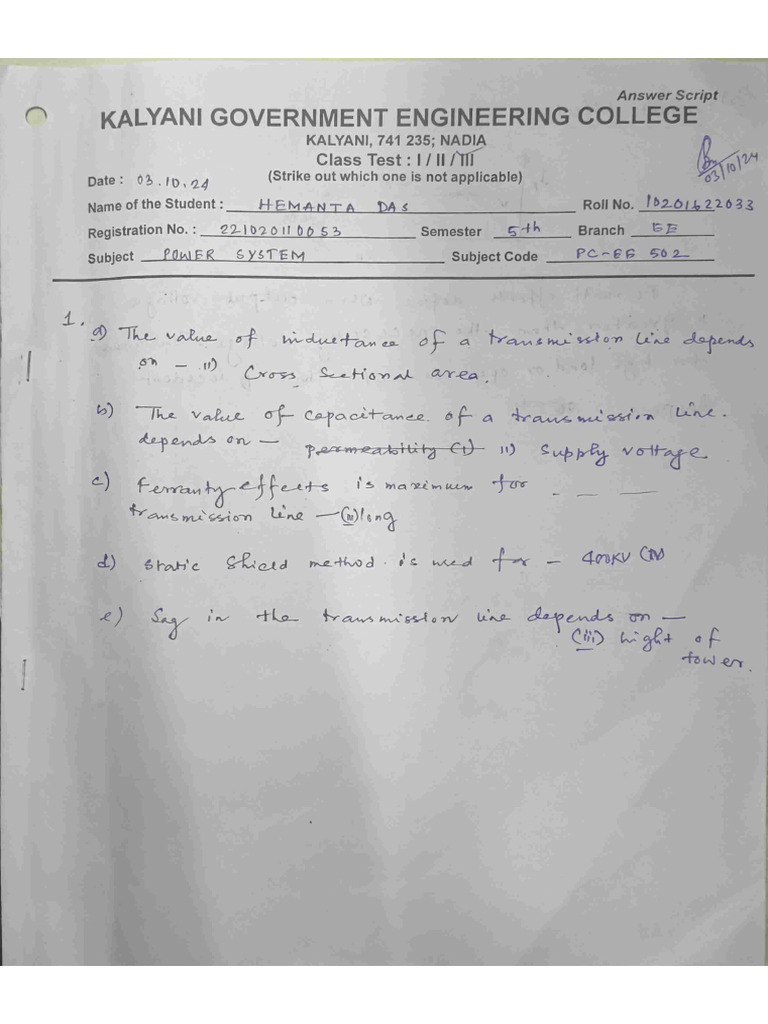 Answer Script
KALYANI GOVERNMENT ENGINEERING COLLEGE
KALYANI, 741 235; NADIA
Class Test : I / II / III
(Strike out which one is not applicable)
03/10/24
Date : 03.10.24
Name of the Student : HEMANTA DAS Roll No. 10201622033
Registration No. : 221020110053 Semester 5th Branch EE
Subject POWER SYSTEM Subject Code PC-EE 502
1. a) The value of inductance of a transmission line depends
on – ii) Cross Sectional area.
b) The value of capacitance. of a transmission line.
depends on – permeability (i) ii) supply voltage
c) Ferranty effects is maximum for _ _ _
transmission line – (iii) long
d) static Shield method. is used for – 400KV (iv)
e) Sag in the transmission line depends on –
(iii) hight of
tower.